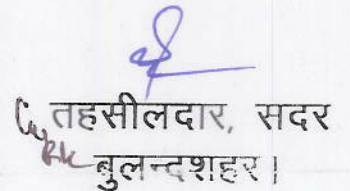 तहसीलदार, सदर
बुलन्दशहर।